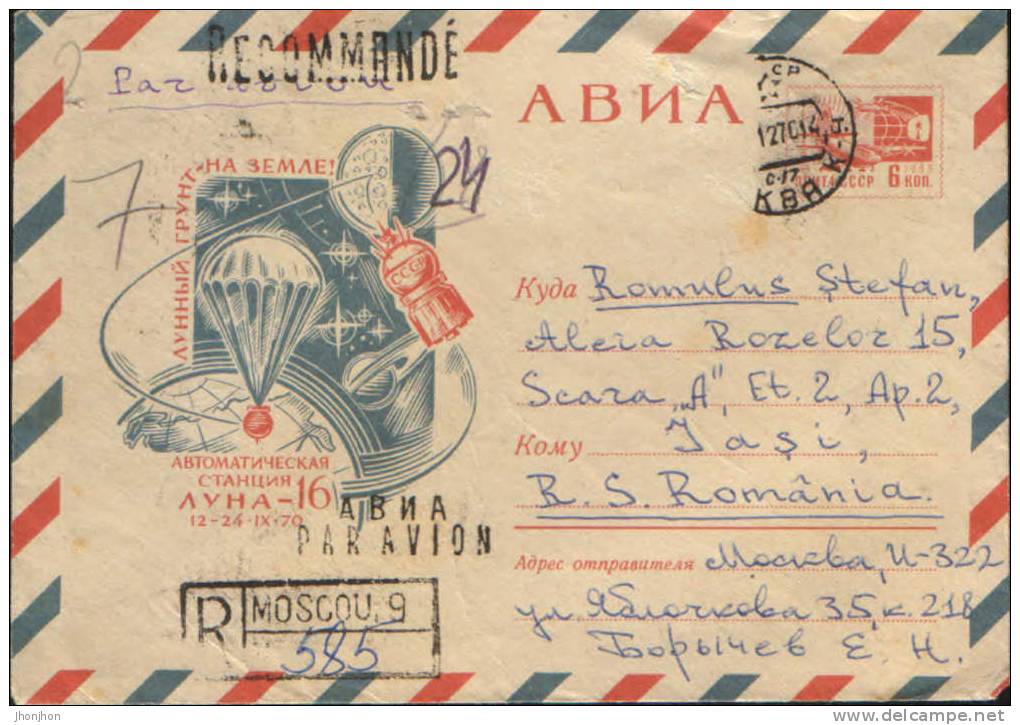 RECOMMANDÉ
Par avion
2
АВИА
24
7
ЛУННЫЙ ГРУНТ-
НА ЗЕМЛЕ!
СССР
АВТОМАТИЧЕСКАЯ
СТАНЦИЯ
ЛУНА-16
12-24·IX·70
АВИА
PAR AVION
R
MOSCOU, 9
585
ПОЧТА СССР 6 КОП.
Куда Romulus Ștefan,
Aleia Rozelor 15,
Scara „A", Et. 2, Ap. 2,
Кому Iași,
R. S. România.
Адрес отправителя Москва, И-322
ул. Яблочкова 35, к. 218
Борычев Е. Н.
jhonjhon
delcampe.net